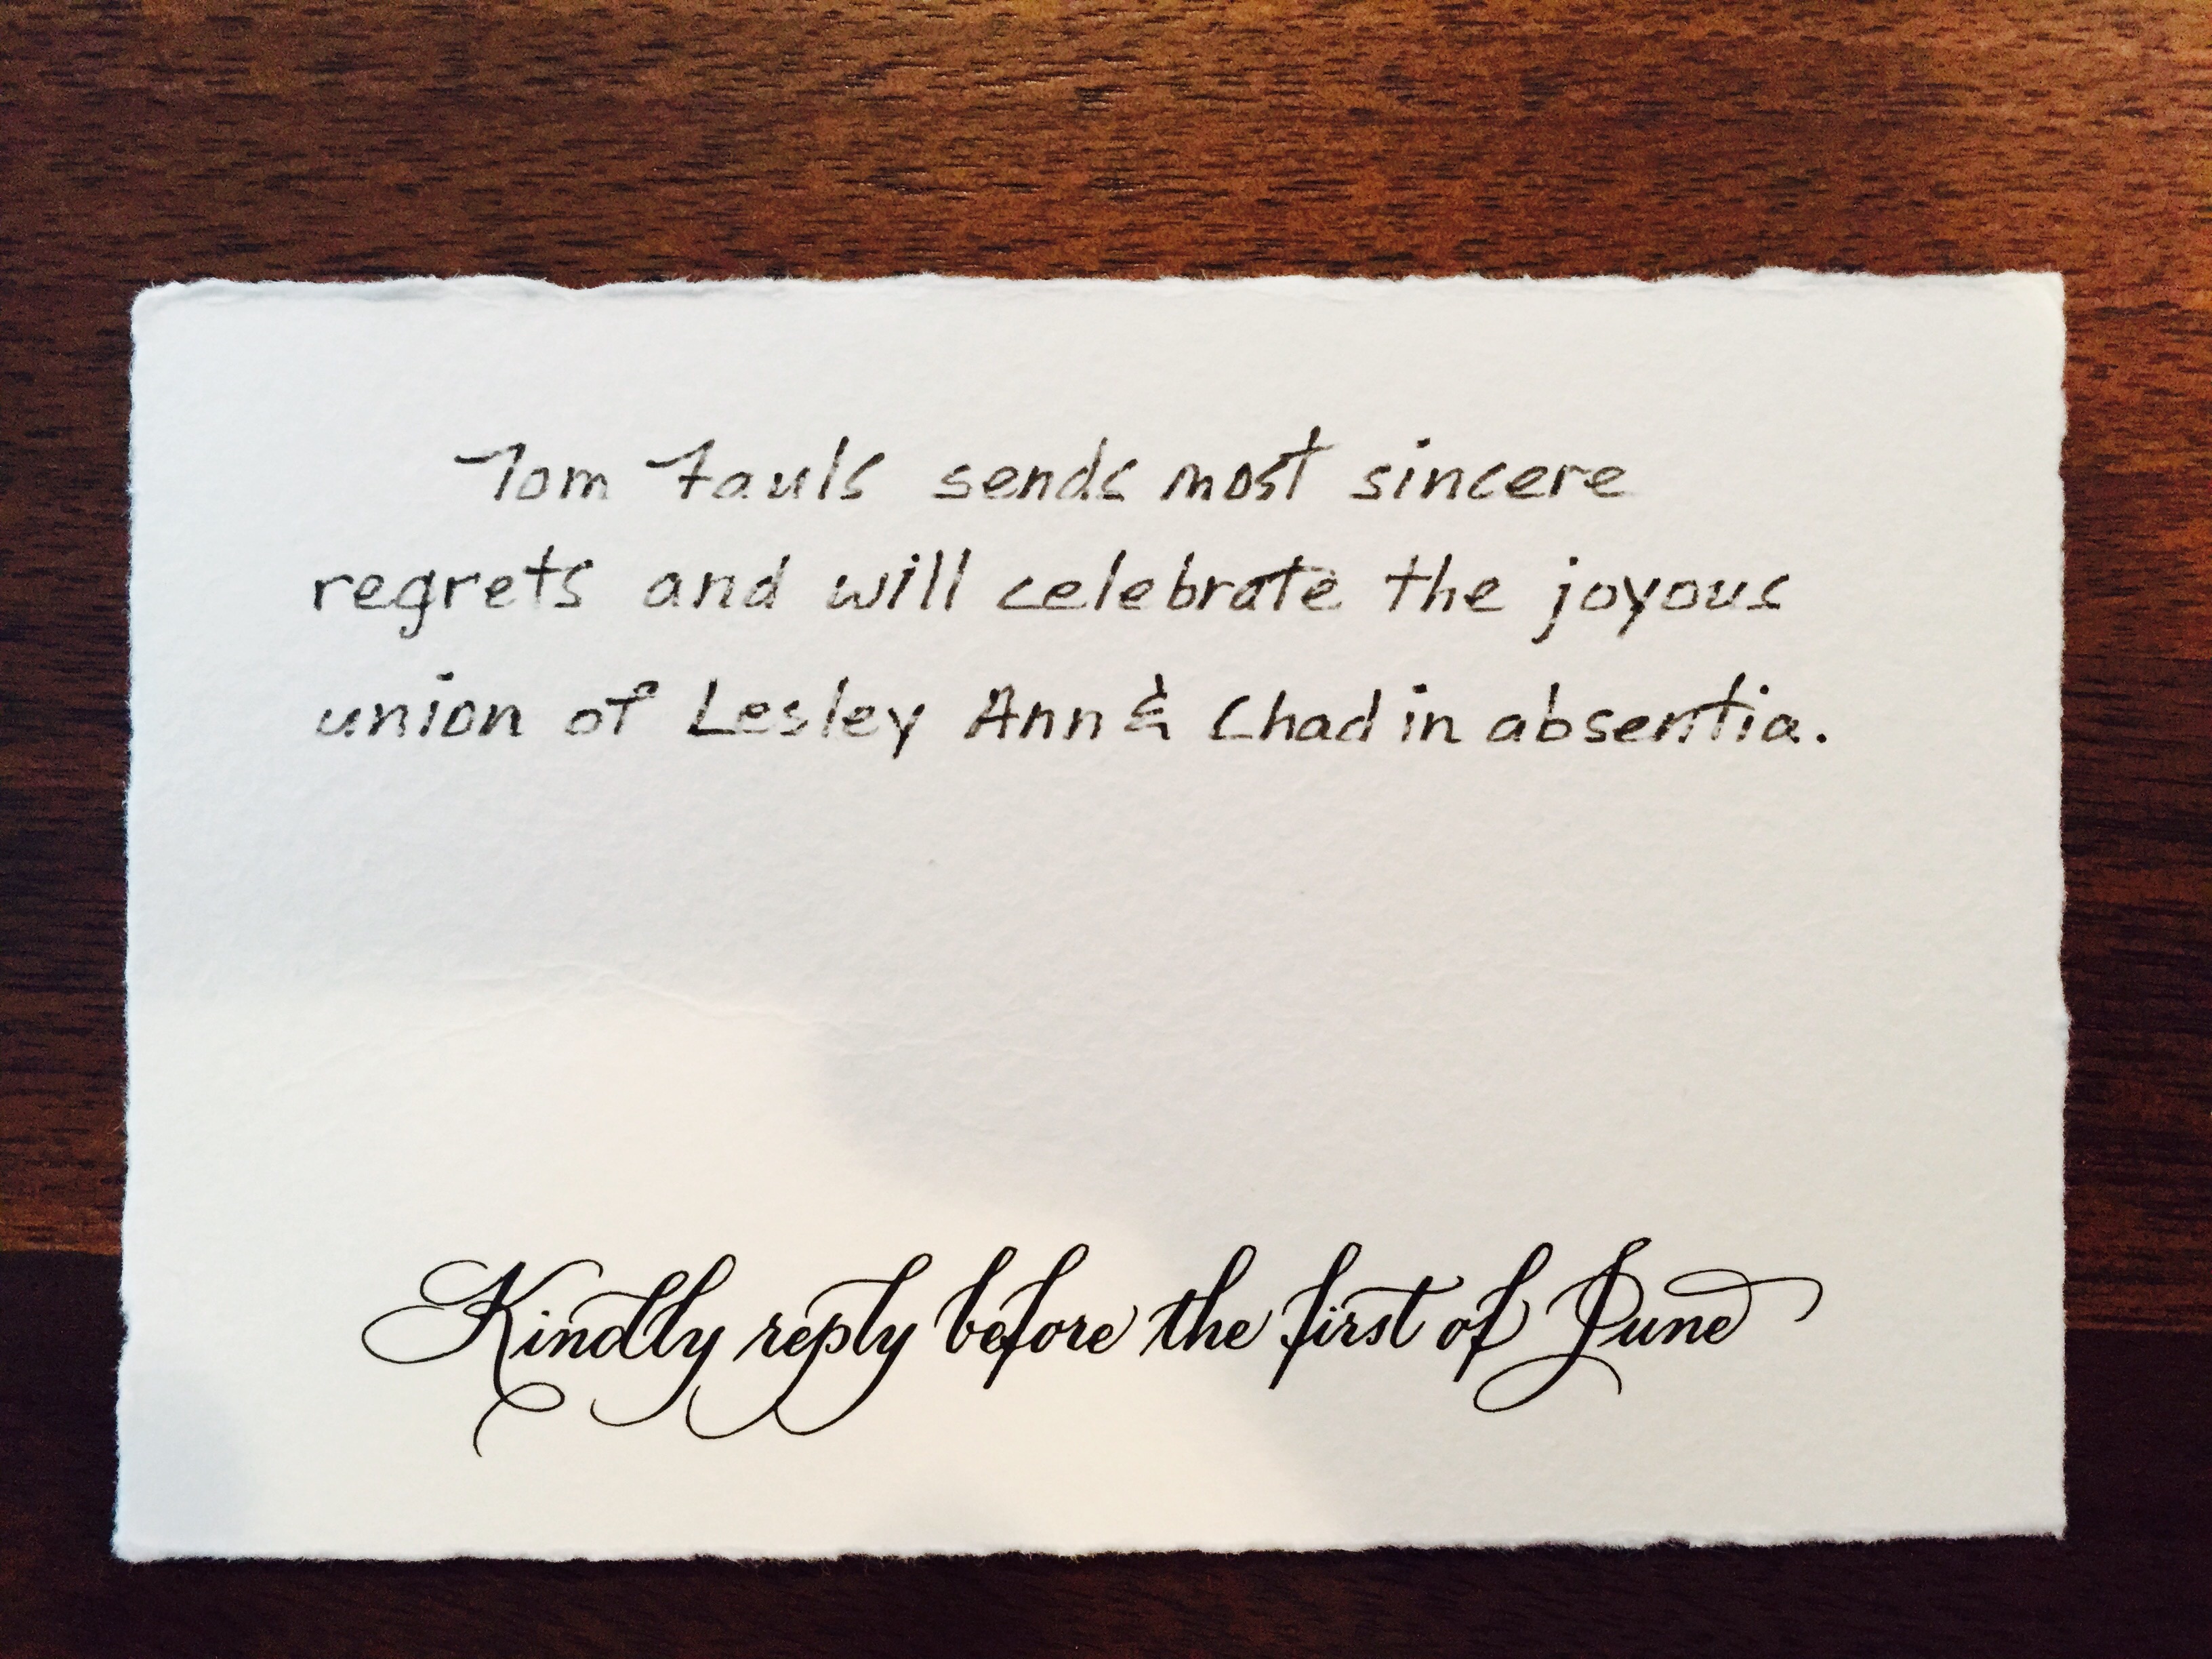 Tom Fauls sends most sincere
regrets and will celebrate the joyous
union of Lesley Ann & Chad in absentia.
Kindly reply before the first of June